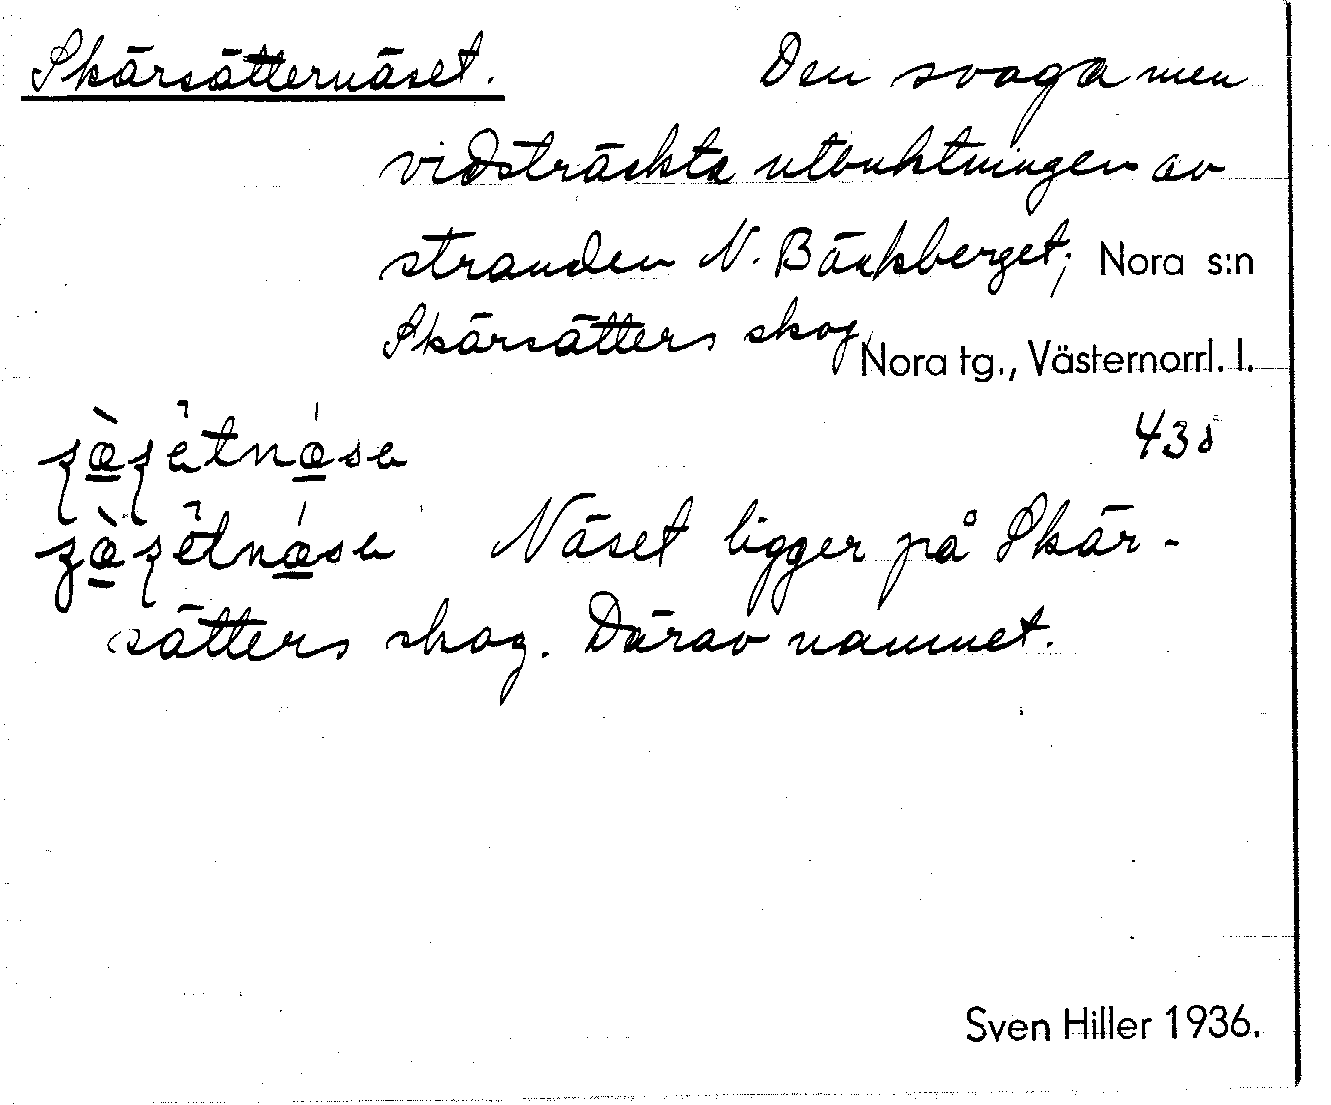 Skärsätternäset. Den svaga men
vidsträckta utbuktningen av
stranden N. Bäckberget; Nora s:n
Skärsätters skog
Nora tg., Västernorrl. l.
438
Näset ligger på Skär-
sätters skog. Därav namnet.
Sven Hiller 1936.